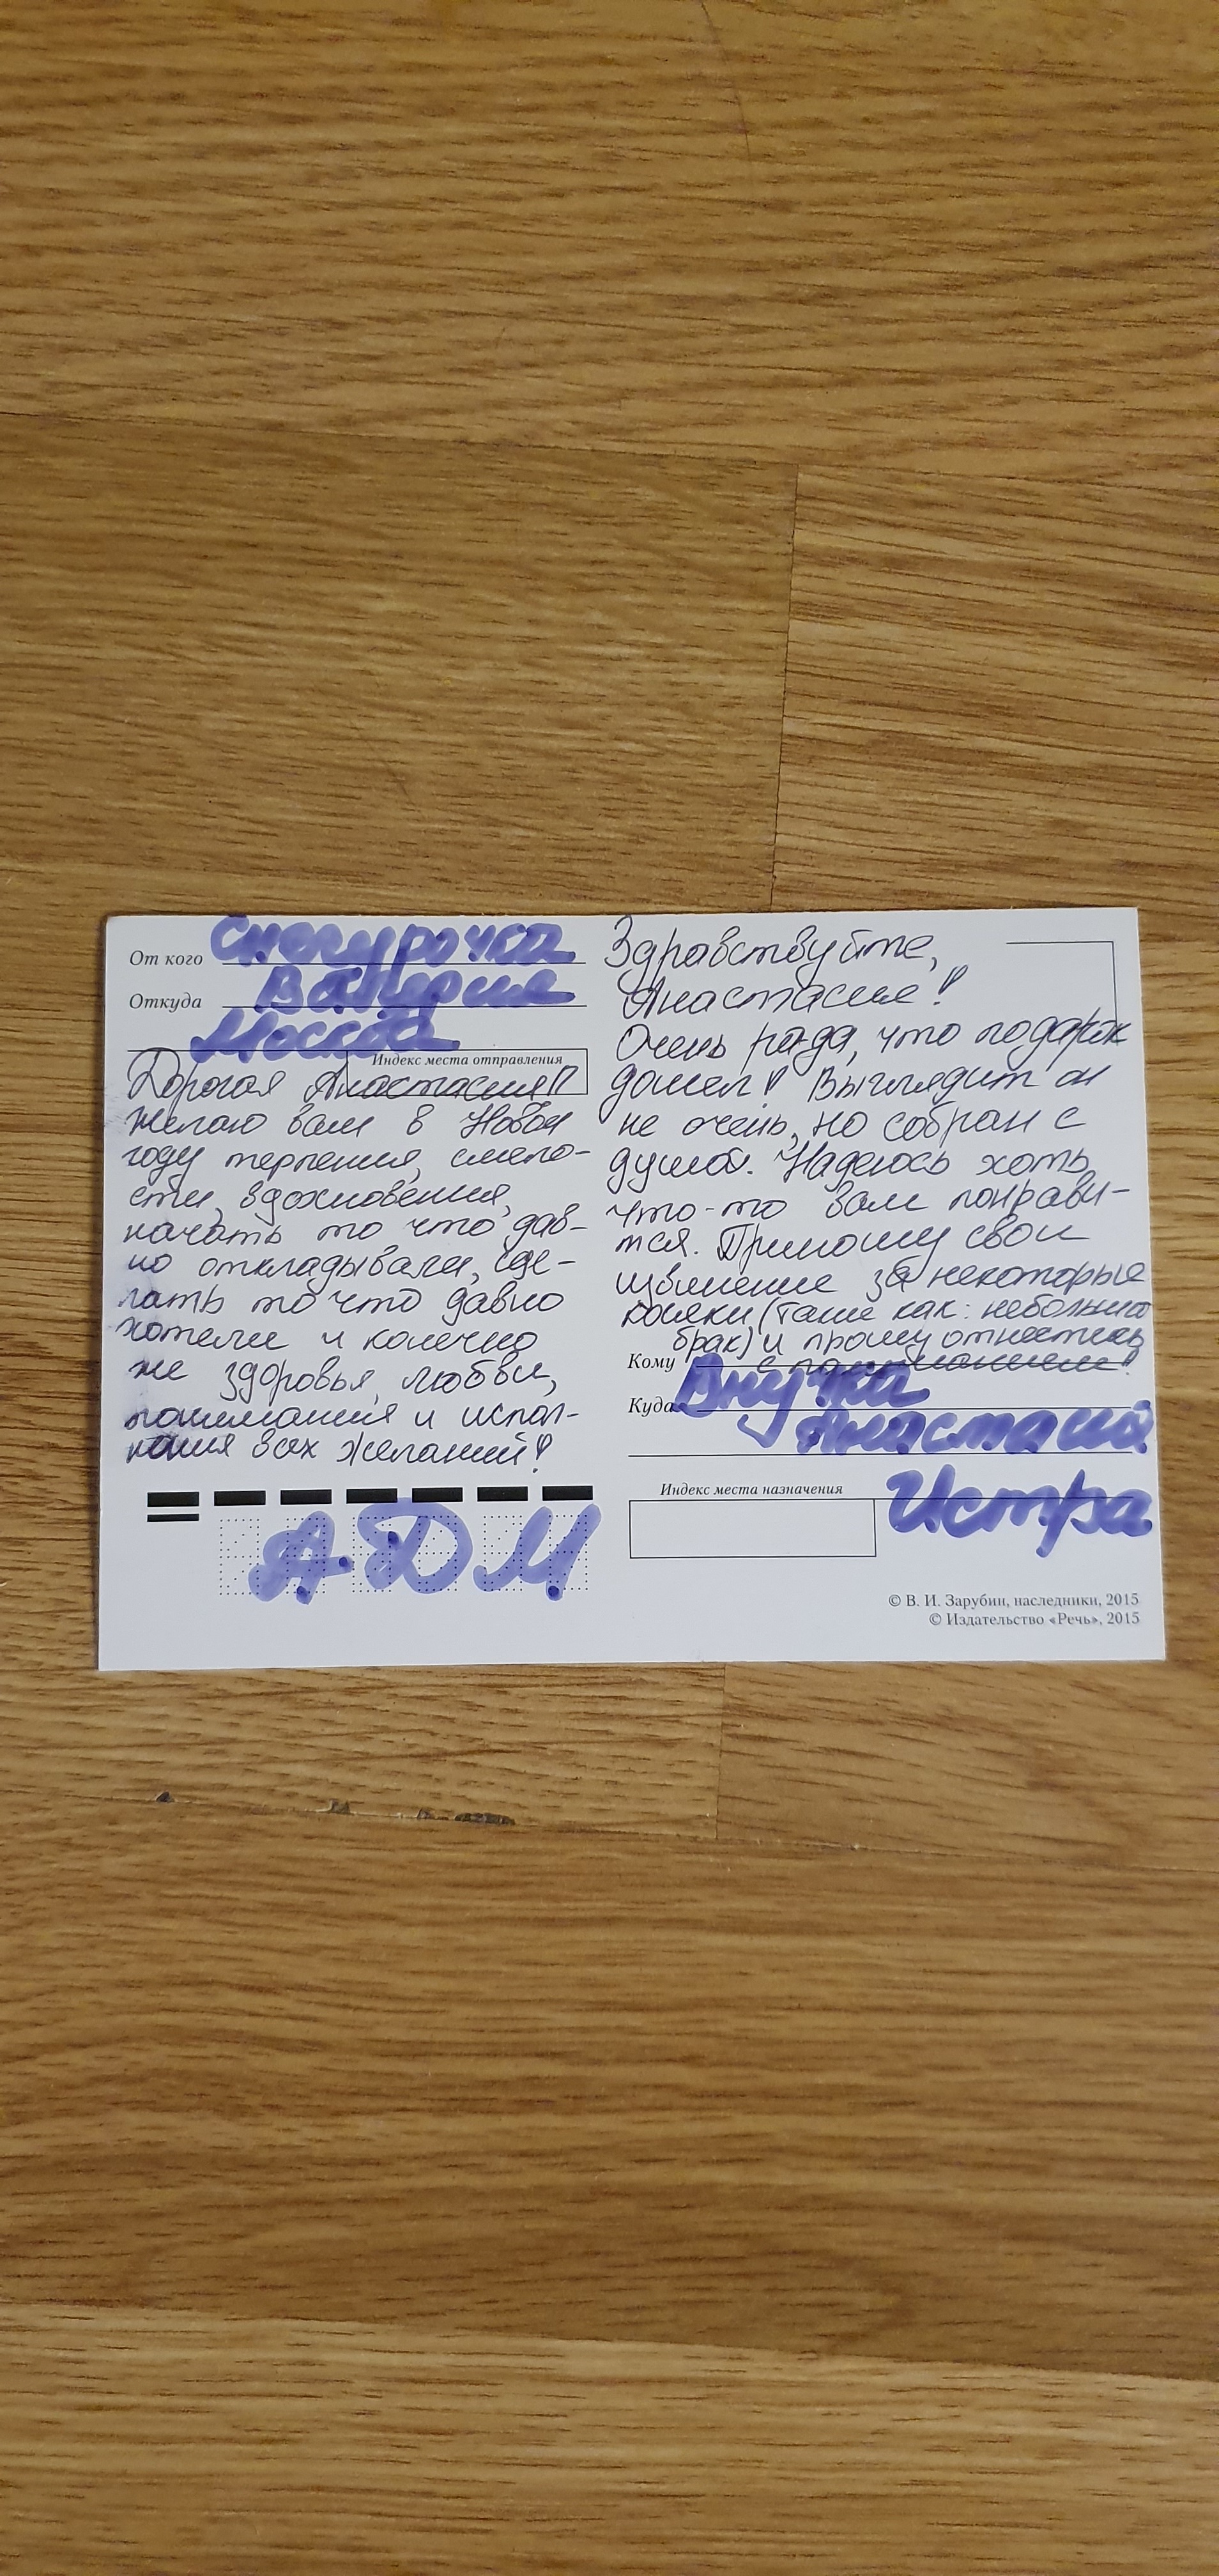 От кого Снегурочка
Откуда Валерия
Москва
Индекс места отправления
Дорогая Анастасия!!
Желаю вам в Новом
году терпения, смело-
сти, вдохновения,
начать то что дав-
но откладывали, сде-
лать то что давно
хотели и конечно
же здоровья, любви,
понимания и испол-
нения всех желаний!
А.Д.М.
Здравствуйте,
Анастасия!
Очень рада, что подарок
дошел! Выглядит он
не очень, но собран с
душой. Надеюсь хоть
что-то вам понрави-
тся. Приношу свои
извинение за некоторые
косяки (такие как: небольшой
брак) и прошу отнестись
с пониманием!
Кому Внучка
Куда Анастасия
Индекс места назначения
Истра
© В. И. Зарубин, наследники, 2015
© Издательство «Речь», 2015